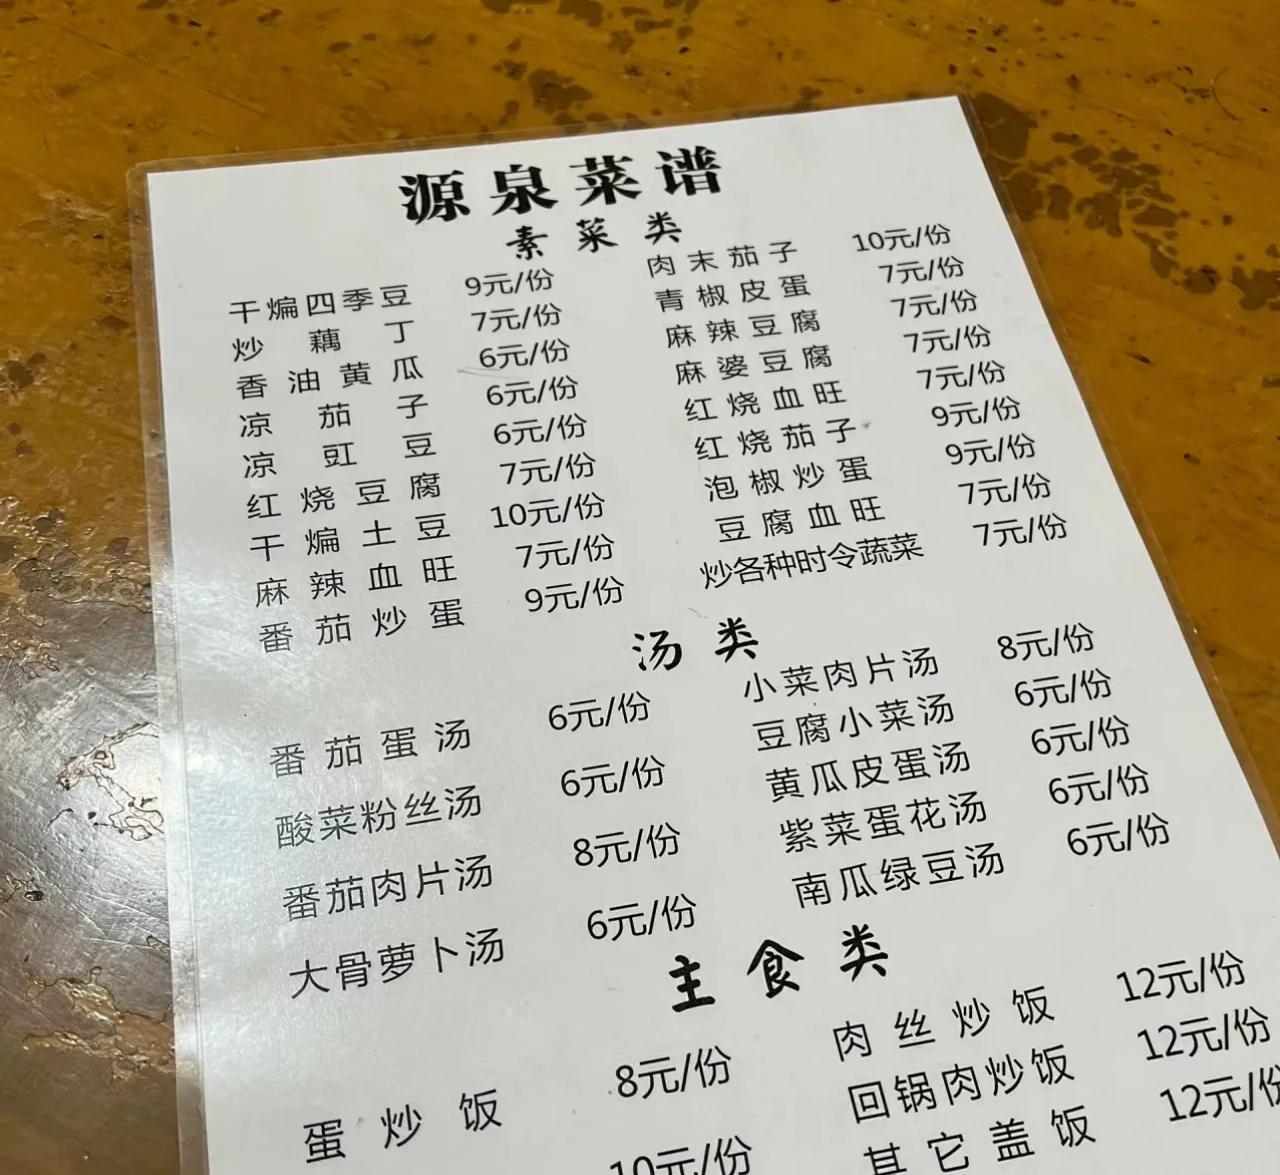 源泉菜谱
素菜类
干煸四季豆 9元/份 肉末茄子 10元/份
炒藕丁 7元/份 青椒皮蛋 7元/份
香油黄瓜 6元/份 麻辣豆腐 7元/份
凉茄子 6元/份 麻婆豆腐 7元/份
凉豇豆 6元/份 红烧血旺 7元/份
红烧豆腐 7元/份 红烧茄子 9元/份
干煸土豆 10元/份 泡椒炒蛋 9元/份
麻辣血旺 7元/份 豆腐血旺 7元/份
番茄炒蛋 9元/份 炒各种时令蔬菜 7元/份
汤类
番茄蛋汤 6元/份 小菜肉片汤 8元/份
酸菜粉丝汤 6元/份 豆腐小菜汤 6元/份
番茄肉片汤 8元/份 黄瓜皮蛋汤 6元/份
大骨萝卜汤 6元/份 紫菜蛋花汤 6元/份
南瓜绿豆汤 6元/份
主食类
蛋炒饭 8元/份 肉丝炒饭 12元/份
10元/份 回锅肉炒饭 12元/份
其它盖饭 12元/份